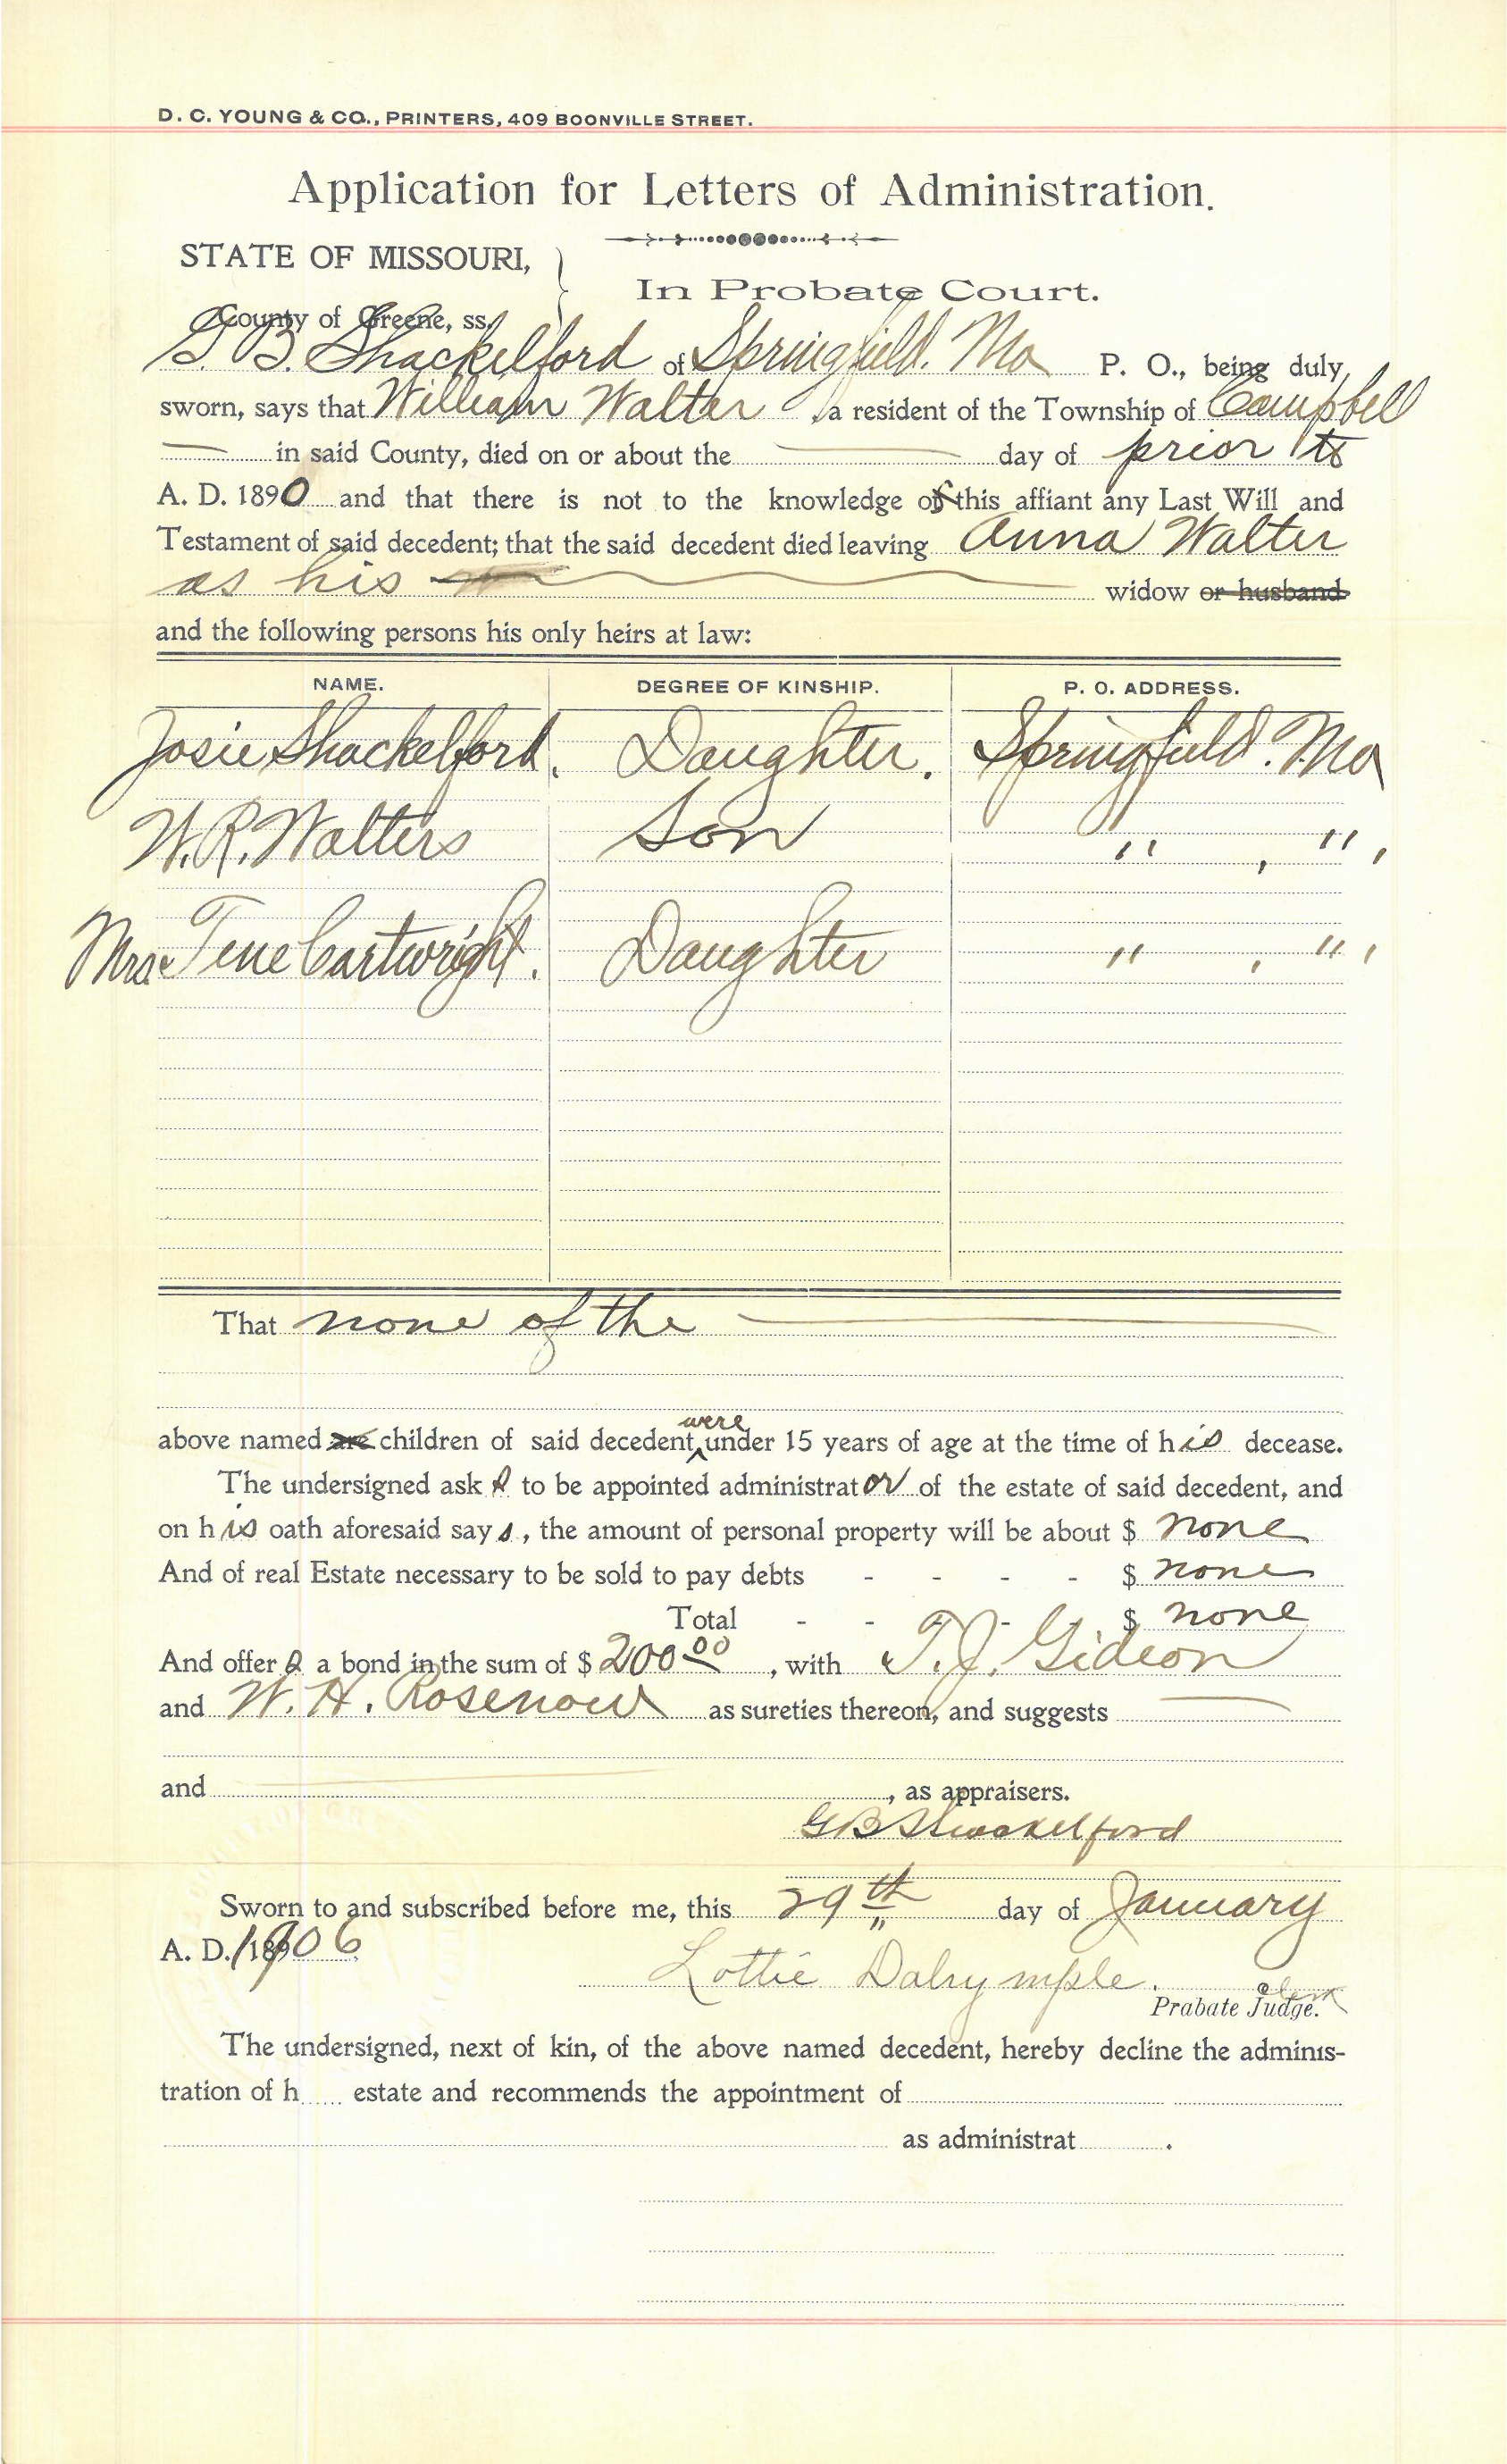 D. C. YOUNG & CO., PRINTERS, 409 BOONVILLE STREET.
Application for Letters of Administration.
STATE OF MISSOURI,
County of Greene, ss.
In Probate Court.
G. B. Shackelford of Springfield. Mo P. O., being duly
sworn, says that William Walter, a resident of the Township of Campbell
in said County, died on or about the day of prior to
A. D. 1890 and that there is not to the knowledge of this affiant any Last Will and
Testament of said decedent; that the said decedent died leaving Anna Walter
as his widow or husband
and the following persons his only heirs at law:
NAME. DEGREE OF KINSHIP. P. O. ADDRESS.
Josie Shackelford. Daughter. Springfield. Mo
W. R. Walters Son " , " ,
Mrs. Tene Cartwright. Daughter " , " ,
That none of the
were
above named are children of said decedent, under 15 years of age at the time of his decease.
The undersigned ask s to be appointed administrator of the estate of said decedent, and
on his oath aforesaid says, the amount of personal property will be about $ none
And of real Estate necessary to be sold to pay debts - - - - $ none
Total - - - - $ none
And offer s a bond in the sum of $ 200 00, with T. J. Gideon
and W. H. Rosenow as sureties thereon, and suggests
and , as appraisers.
G B Shackelford
Sworn to and subscribed before me, this 29th day of January
A. D. 1906
Lottie Dalrymple.
clerk
Prabate Judge.
The undersigned, next of kin, of the above named decedent, hereby decline the adminis-
tration of h estate and recommends the appointment of
as administrat .